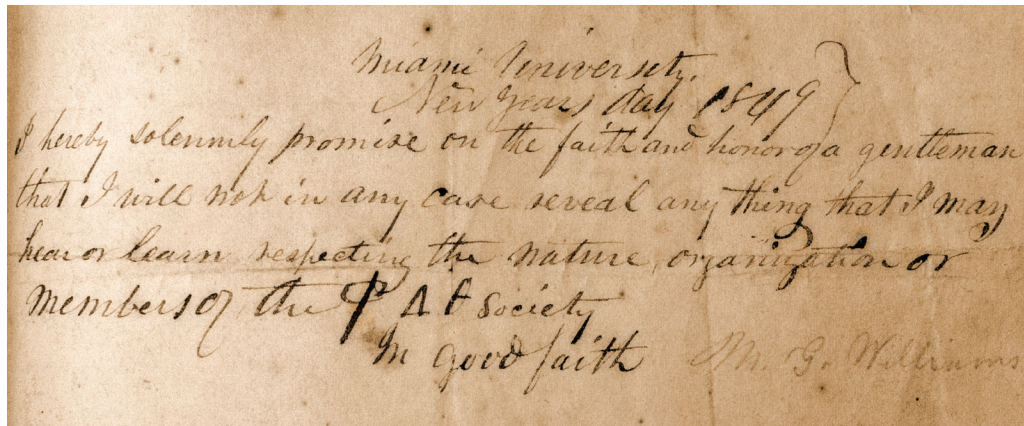 Miami University.
New Years day 1849
I hereby solemnly promise on the faith and honor of a gentleman
that I will not in any case reveal any thing that I may
hear or learn respecting the nature, organization or
members of the Φ Δ Θ Society
In good faith M. G. Williams